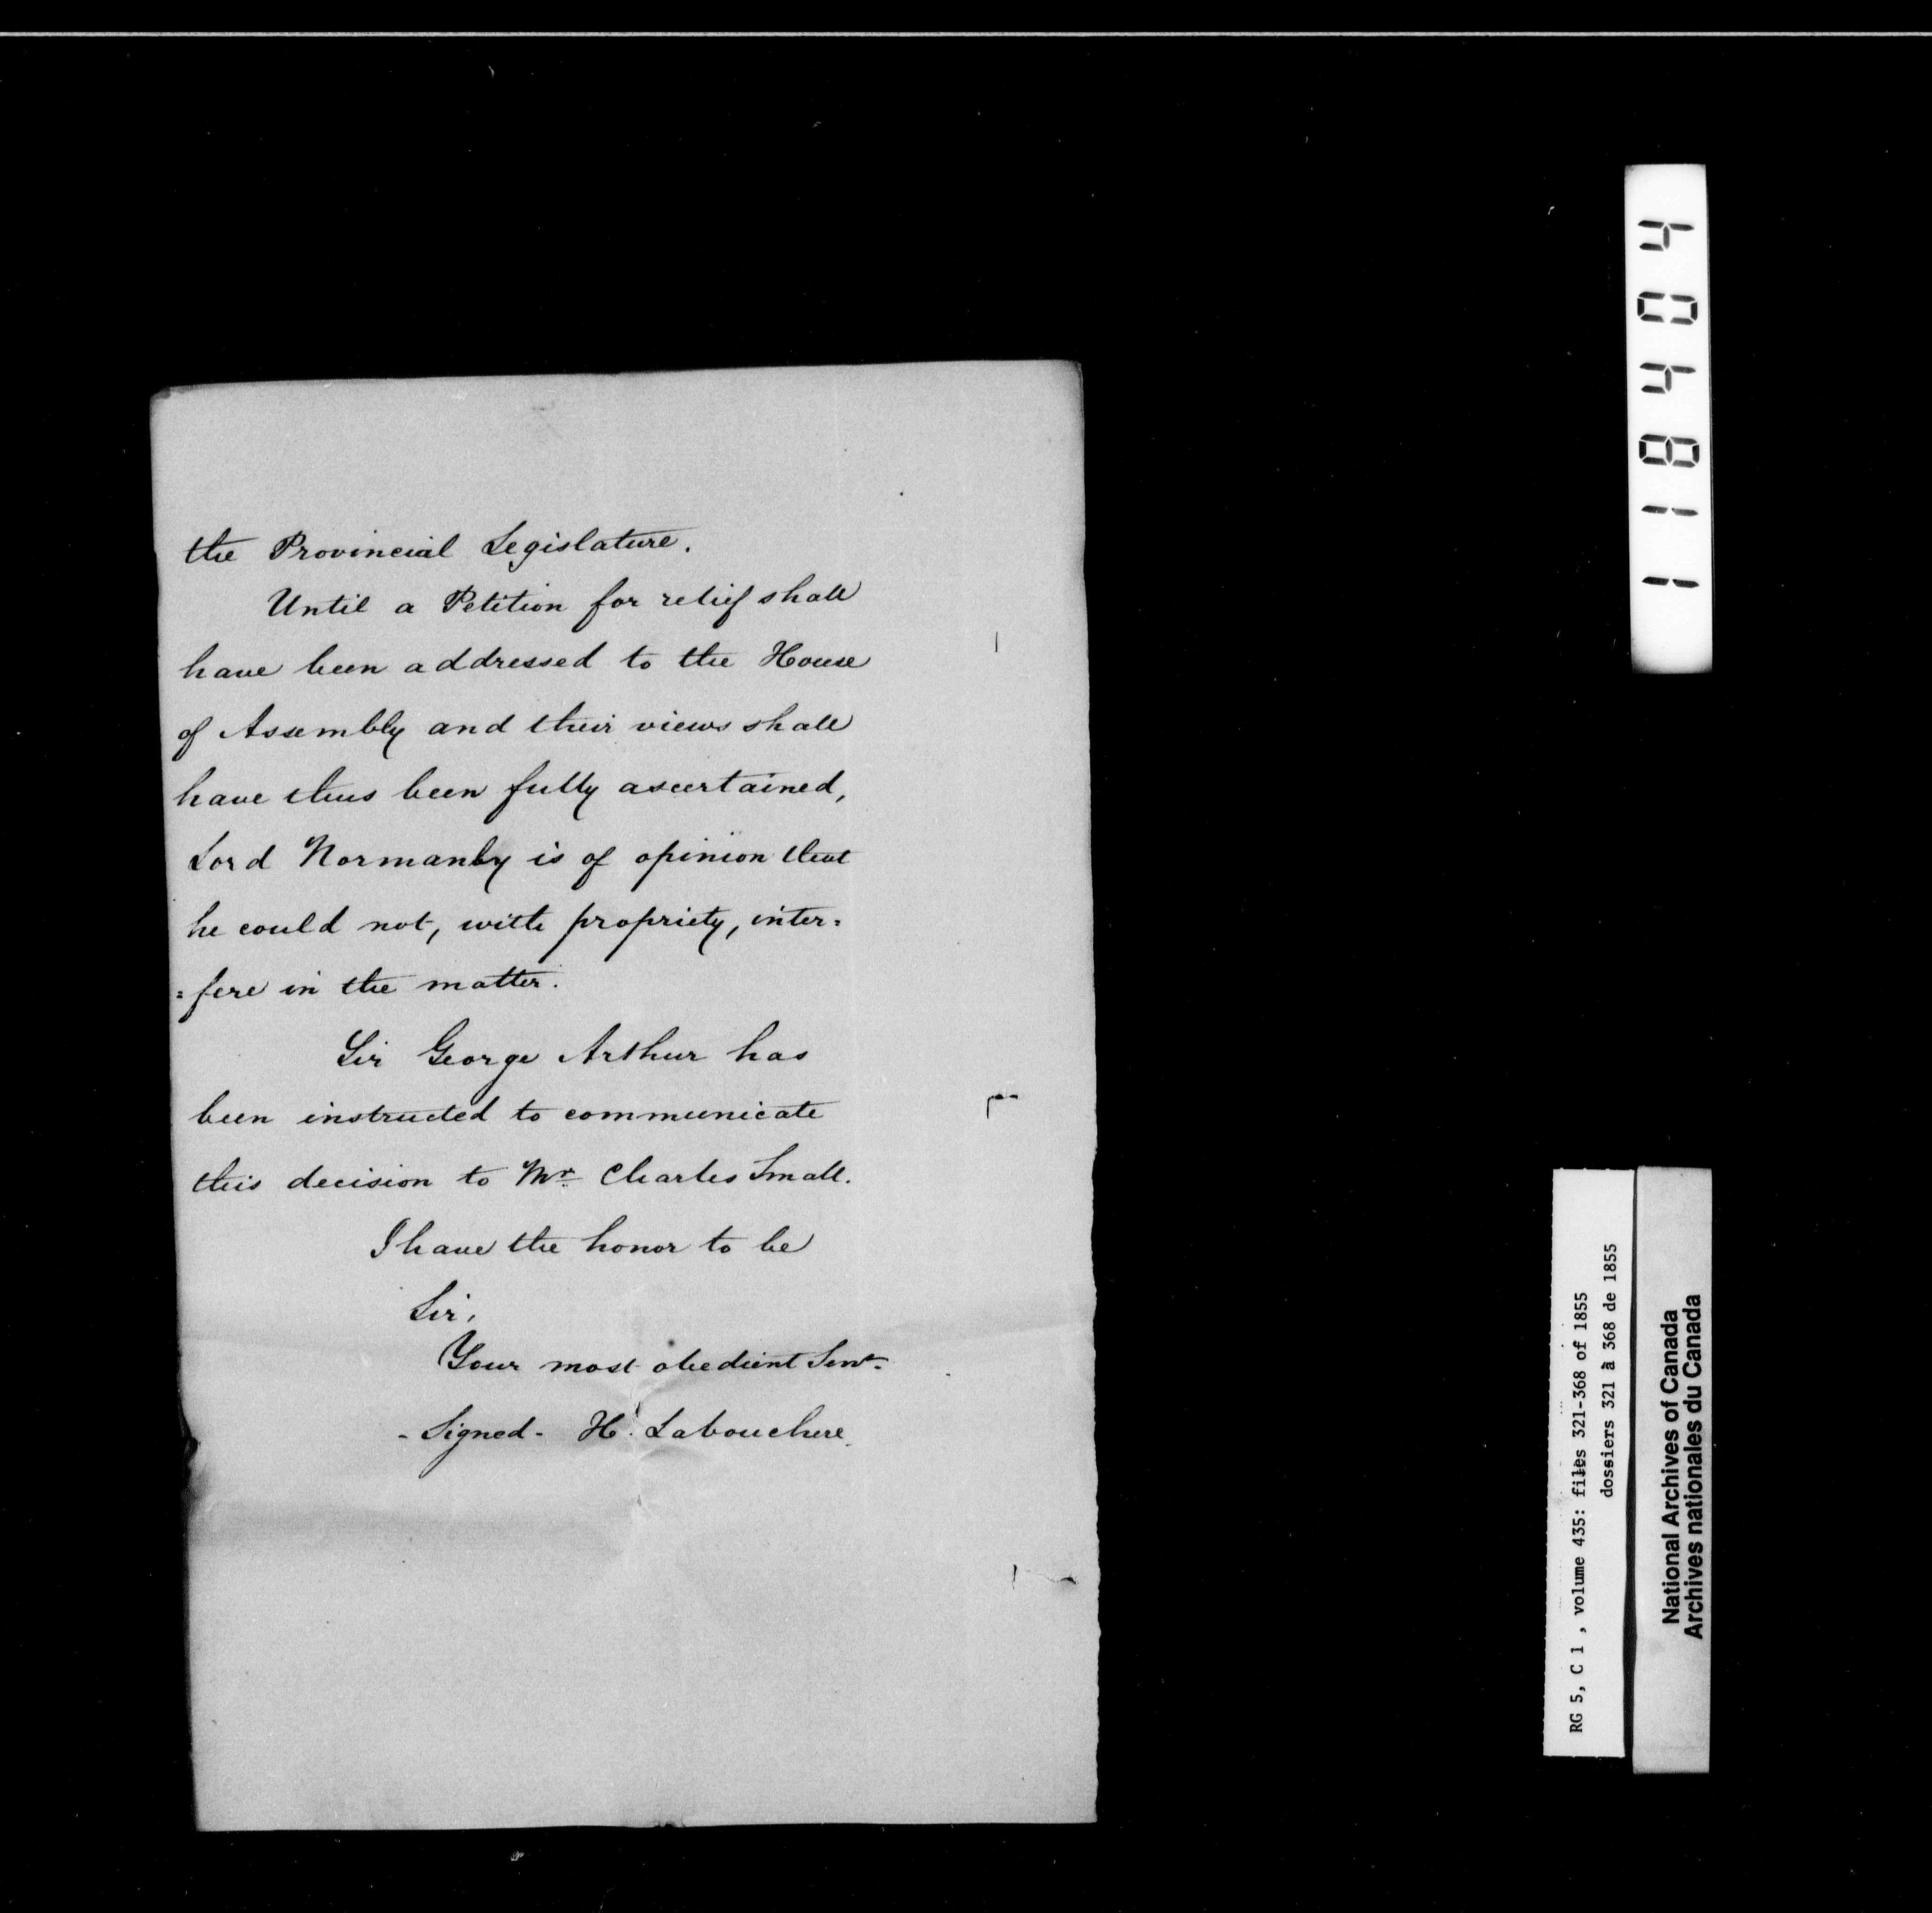 the Provincial Legislature.
Until a Petition for relief shall
have been addressed to the House
of Assembly and their views shall
have thus been fully ascertained,
Lord Normanby is of opinion that
he could not, with propriety, inter=
=fere in the matter.
Sir George Arthur has
been instructed to communicate
this decision to Mr. Charles Small.
I have the honor to be
Sir,
Your most obedient Servt.
- Signed - H. Labouchere.
118404
RG 5, C 1 , volume 435: files 321-368 of 1855
dossiers 321 à 368 de 1855
National Archives of Canada
Archives nationales du Canada